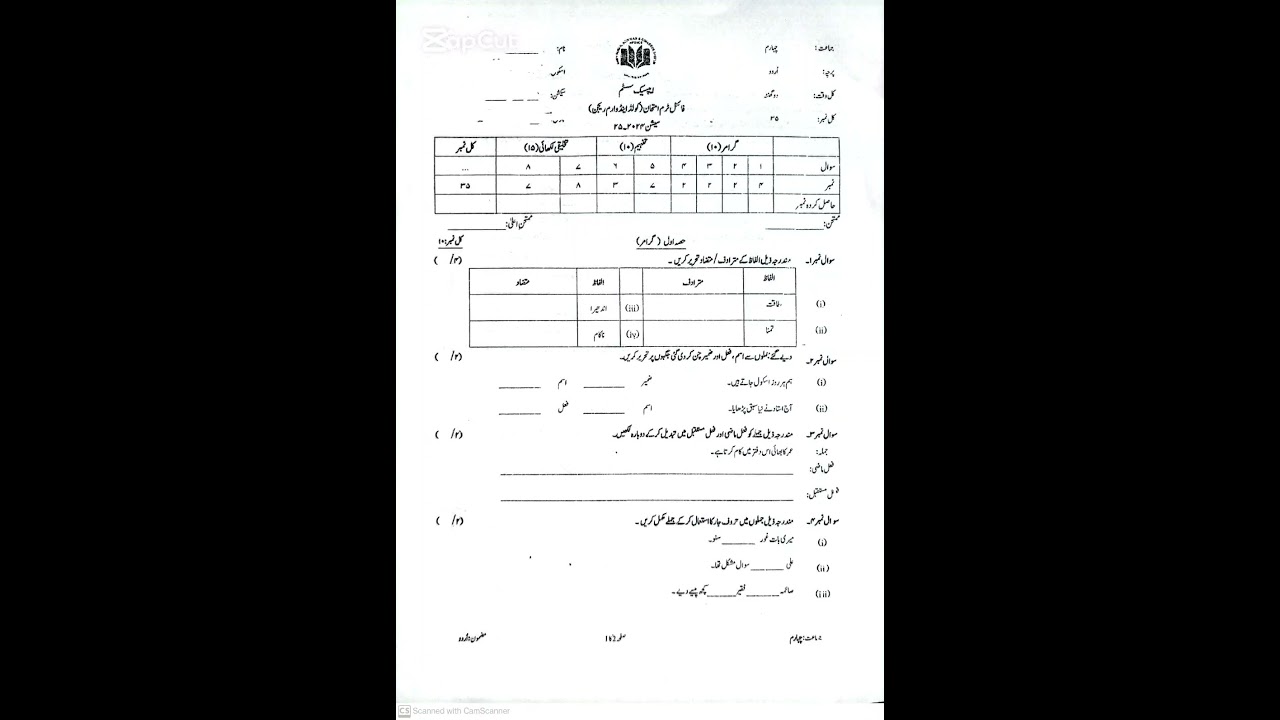 CapCut
جماعت: چہارم
نام:
پرچہ: اُردو
اسکول:
کل وقت: دو گھنٹہ
سیکشن:
کل نمبر: ۳۵
ایپسیک سسٹم
فائنل ٹرم امتحان (کولڈ اینڈ وارم ریجن)
سیشن ۲۰۲۴ـ۲۵
گرامر (۱۰) تفہیم (۱۰) تخلیقی لکھائی (۱۵) کل نمبر
سوال ۱ ۲ ۳ ۴ ۵ ۶ ۷ ۸ ...
نمبر ۴ ۲ ۲ ۲ ۷ ۳ ۸ ۷ ۳۵
حاصل کردہ نمبر
ممتحن: ممتحنِ اعلیٰ:
حصہ اول (گرامر) کل نمبر: ۱۰
سوال نمبر ۱۔ مندرجہ ذیل الفاظ کے مترادف/متضاد تحریر کریں۔ ( /۴)
الفاظ مترادف الفاظ متضاد
(i) طاقت (iii) اندھیرا
(ii) تمنا (iv) ناکام
سوال نمبر ۲۔ دیے گئے جملوں سے اسم، فعل اور ضمیر چن کر دی گئی جگہوں پر تحریر کریں۔ ( /۲)
(i) ہم ہر روز اسکول جاتے ہیں۔ ضمیر ______ اسم ______
(ii) آج استاد نے نیا سبق پڑھایا۔ اسم ______ فعل ______
سوال نمبر ۳۔ مندرجہ ذیل جملے کو فعل ماضی اور فعل مستقبل میں تبدیل کر کے دوبارہ لکھیں۔ ( /۲)
جملہ: عمر کا بھائی اس دفتر میں کام کرتا ہے۔
فعل ماضی:
فعل مستقبل:
سوال نمبر ۴۔ مندرجہ ذیل جملوں میں حروف جار کا استعمال کر کے جملے مکمل کریں۔ ( /۲)
(i) میری بات غور ______ سنو۔
(ii) علی ______ سوال مشکل تھا۔
(iii) صائمہ ______ فقیر ______ کچھ پیسے دیے۔
جماعت: چہارم صفحہ 2 کا 1 مضمون: اُردو
CS Scanned with CamScanner